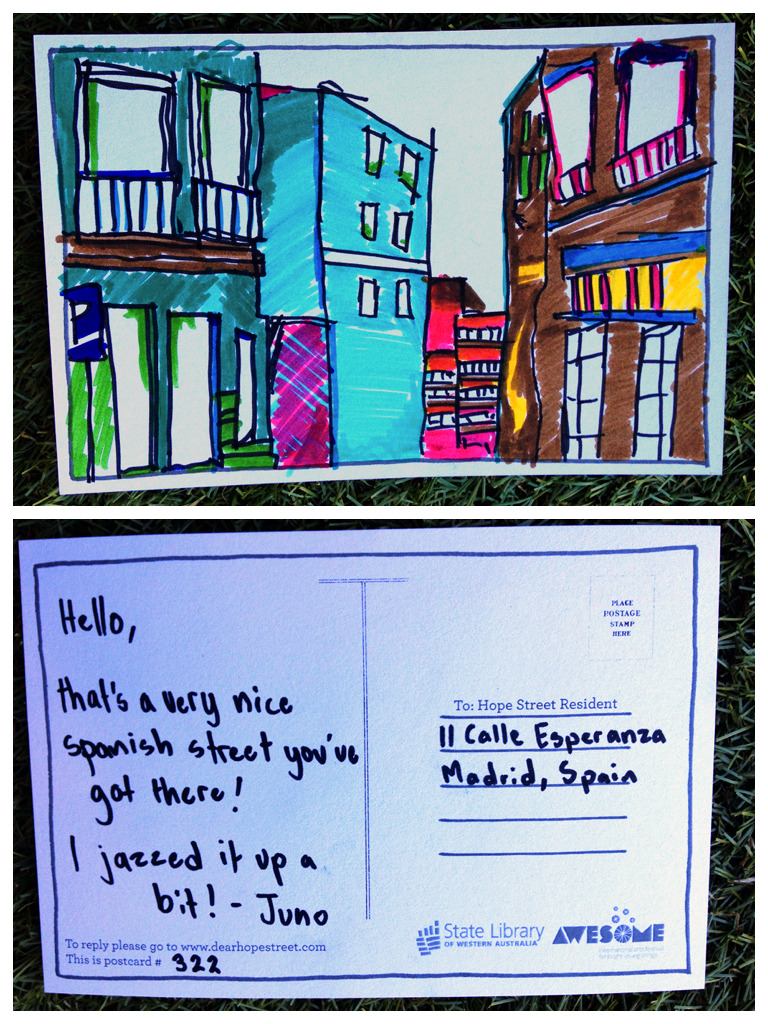 P
Hello,
that's a very nice
spanish street you've
got there!
I jazzed it up a
bit! - Juno
To reply please go to www.dearhopestreet.com
This is postcard # 322
PLACE
POSTAGE
STAMP
HERE
To: Hope Street Resident
11 Calle Esperanza
Madrid, Spain
State Library
OF WESTERN AUSTRALIA
AWESOME